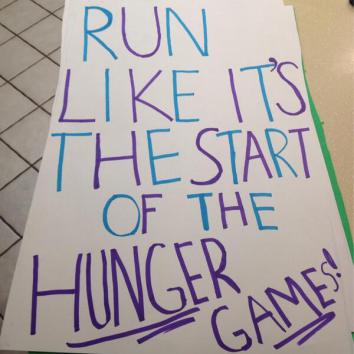 RUN
LIKE IT'S
THE START
OF THE
HUNGER
GAMES!